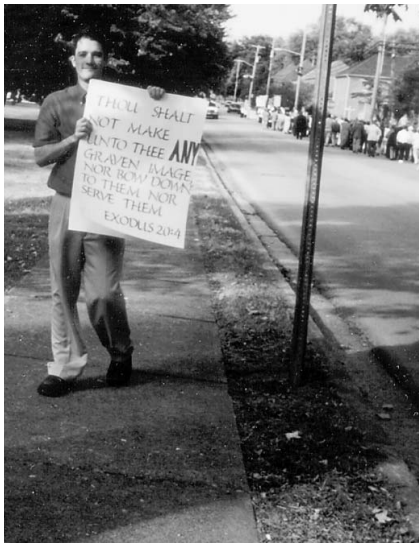 THOU SHALT
NOT MAKE
UNTO THEE ANY
GRAVEN IMAGE
NOR BOW DOWN
TO THEM NOR
SERVE THEM
EXODUS 20:4